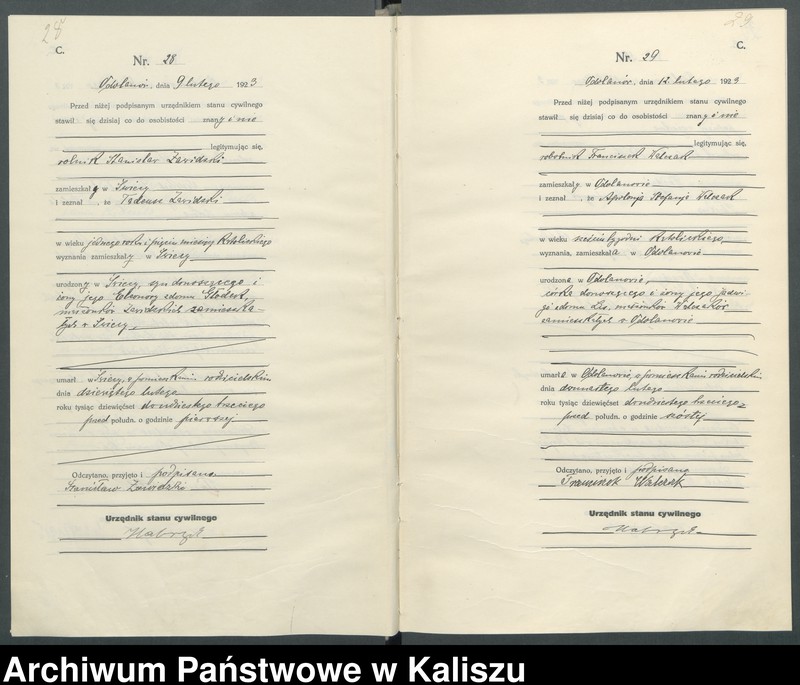 28
C.
Nr. 28
Odolanów, dnia 9 lutego 1923
Przed niżej podpisanym urzędnikiem stanu cywilnego
stawił się dzisiaj co do osobistości znany i nie
legitymując się,
rolnik Stanislaw Zawidzki
zamieszkały w Świecy
i zeznał, że Tadeusz Zawidzki
w wieku jednego roku i pięciu miesięcy katolickiego
wyznania zamieszkały w Świecy
urodzony w Świecy, syn donoszącego i
żony jego Eleonory z domu
małżonków Zawidzkich zamieszka-
łych w Świecy,
umarł w Świecy, w pomieszkaniu rodzicielskim
dnia dziewiątego lutego
roku tysiąc dziewięćset dwudziestego trzeciego
przed połudn. o godzinie pierwszej
Odczytano, przyjęto i podpisano
Stanisław Zawidzki
Urzędnik stanu cywilnego
29
C.
Nr. 29
Odolanów, dnia 12 lutego 1923
Przed niżej podpisanym urzędnikiem stanu cywilnego
stawił się dzisiaj co do osobistości znany i nie
legitymując się,
robotnik Franciszek Walczak
zamieszkały w Odolanowie
i zeznał, że Apolonja Stefanja Walczak
w wieku sześciu tygodni katolickiego
wyznania, zamieszkała w Odolanowie
urodzona w Odolanowie,
córka donoszącego i żony jego Jadwi-
gi z domu małżonków Walczaków
zamieszkałych w Odolanowie
umarła w Odolanowie, w pomieszkaniu rodzicielskim
dnia dwunastego lutego
roku tysiąc dziewięćset dwudziestego trzeciego
przed połudn. o godzinie szóstej
Odczytano, przyjęto i podpisano
Franciszek Walczak
Urzędnik stanu cywilnego
Archiwum Państwowe w Kaliszu